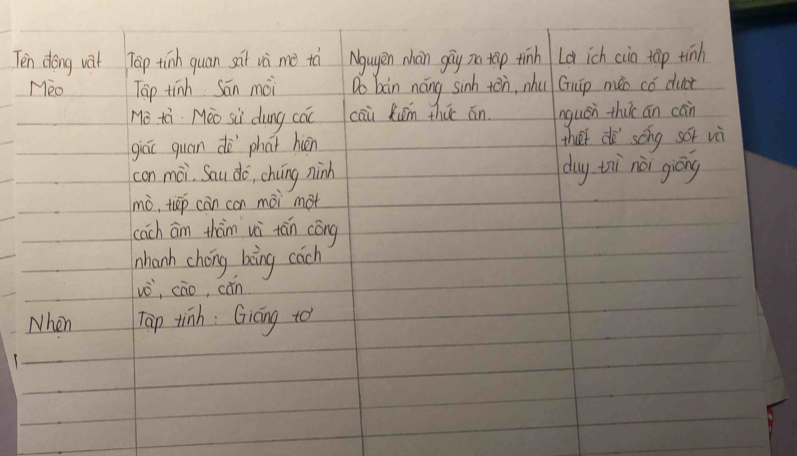 Tên động vật
Tập tính quan sát và mô tả
Nguyên nhân gây ra tập tính
Lợi ích của tập tính
Mèo
Tập tính: Săn mồi
Mô tả: Mèo sử dụng các
giác quan để phát hiện
con mồi. Sau đó, chúng rình
mò, tiếp cận con mồi một
cách âm thầm và tấn công
nhanh chóng bằng cách
vồ, cào, cắn
Do bản năng sinh tồn, nhu
cầu kiếm thức ăn.
Giúp mèo có được
nguồn thức ăn cần
thiết để sống sót và
duy trì nòi giống
Nhện
Tập tính: Giăng tơ